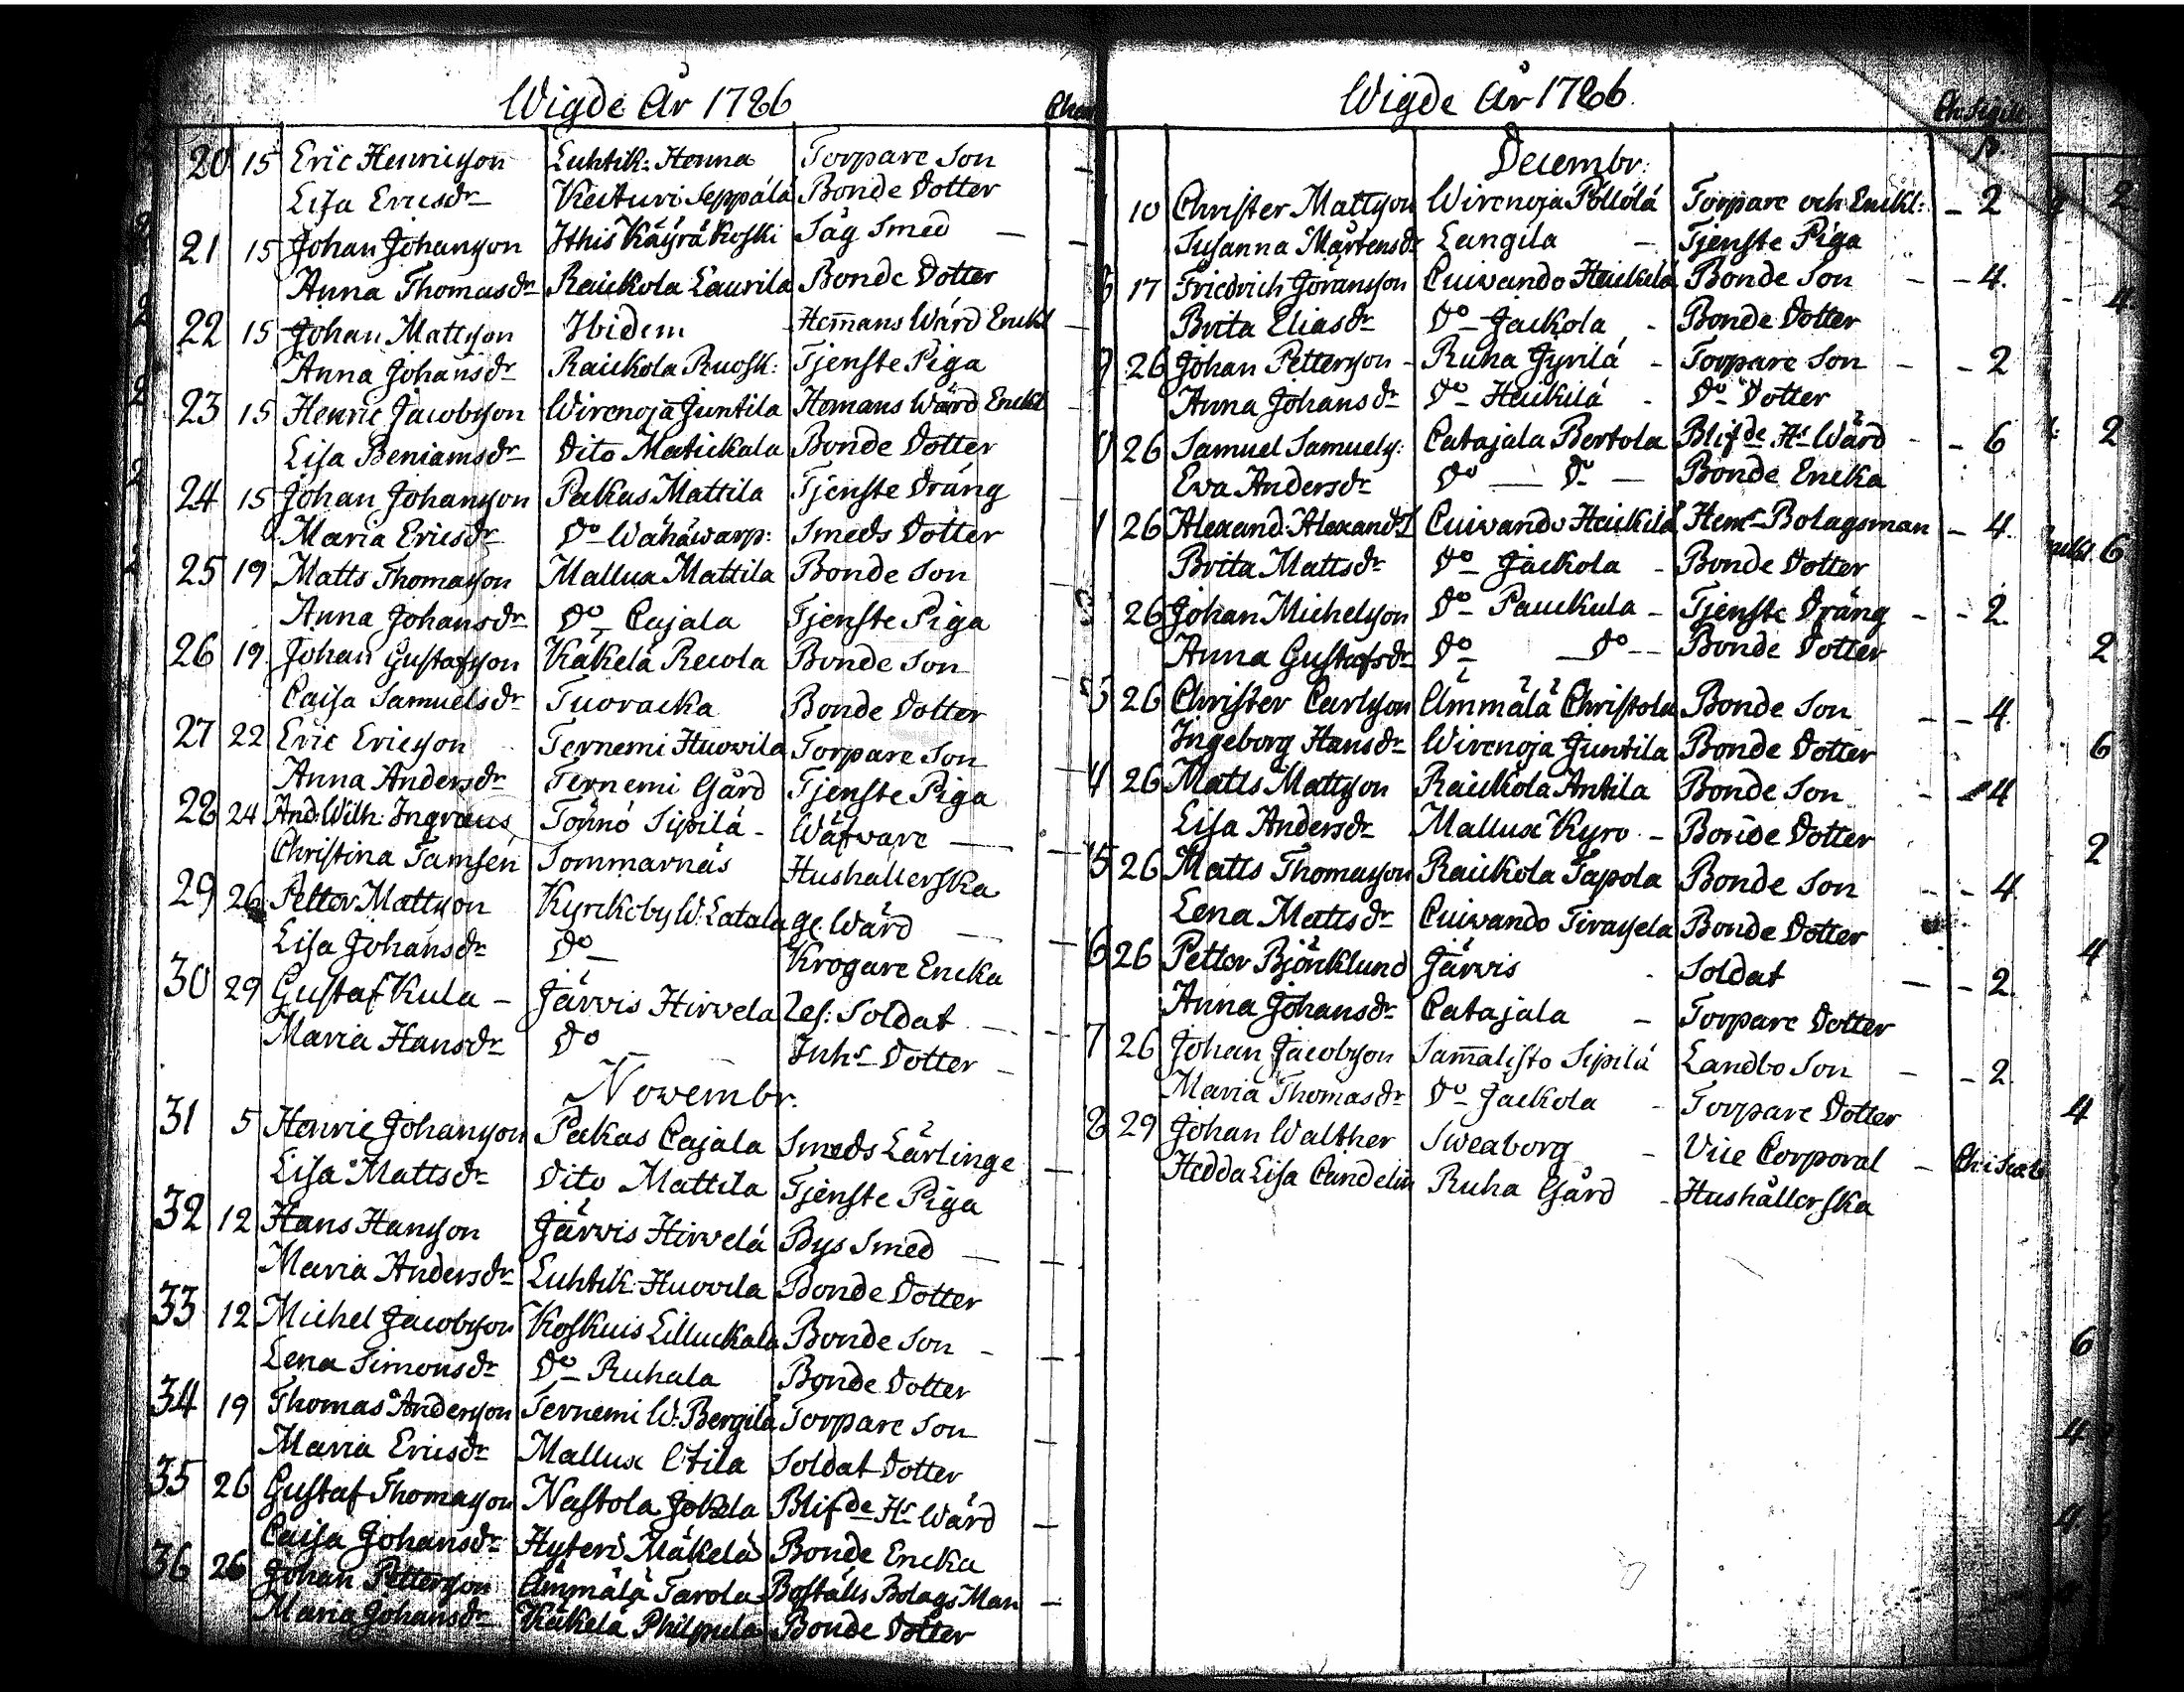 Wigde År 1786
20 15 Eric Henricsson Luhtik: Henna Torpare Son
Lisa Ericsdr Keituri Seppälä Bonde Dotter
21 15 Johan Johansson Ithis Käyräkoski Såg Smed —
Anna Thomasdr Raickola Laurila Bonde Dotter
22 15 Johan Mattsson Ibidem Hem̄ans Wärd Enckl
Anna Johansdr Raickola Ruosk: Tjenste Piga
23 15 Henric Jacobsson Wirenoja Juntila Hemans Wärd Enckl
Lisa Beniamsdr Dito Matickala Bonde Dotter
24 15 Johan Johansson Pakas Mattila Tjenste Dräng
Maria Ericsdr Do Wähäwarp: Smeds Dotter
25 19 Matts Thomasson Mallux Mattila Bonde Son
Anna Johansdr Do Cajala Tjenste Piga
26 19 Johan Gustafsson Käkelä Recola Bonde Son
Caisa Samuelsdr Tuoracka Bonde Dotter
27 22 Eric Ericsson Ternemi Huovila Torpare Son
Anna Andersdr Ternemi Gård Tjenste Piga
28 24 And: Wilh: Ingraeus Tönnö Sipilä - Wäfvare —
Christina Tamsén Sommarnäs Hushallerska
29 26 Petter Mattsson Kyrckoby W: Latala ge. Wärd —
Lisa Johansdr Do — Krogare Encka
30 29 Gustaf Kula - Järvis Hirvela Res: Soldat —
Maria Hansdr Do — Inhs Dotter —
Novembr:
31 5 Henric Johansson Pakas Cajala Smeds Lärlinge
Lisa Mattsdr Dito Mattila Tjenste Piga
32 12 Hans Hansson Järvis Hirvelä Bys Smed —
Maria Andersdr Luhtik: Huovila Bonde Dotter
33 12 Michel Jacobsson Koskuis Lilluckala Bonde Son -
Lena Simonsdr Do Ruhala Bonde Dotter
34 19 Thomas Andersson Ternemi W: Bergilä Torpare Son
Maria Ericsdr Mallux Otila Soldat Dotter
35 26 Gustaf Thomasson Nastola Jokela Blifde Hs Wärd
Caisa Johansdr Hyteri Mäkelä Bonde Encka
36 26 Johan Pettersson Ämmälä Tarola Boställs Bolags Man —
Maria Johansdr Käkelä Philpula Bonde Dotter
Wigde År 1786.
Decembr:
10 Christer Mattsson Wirenoja Pöllölä Torpare och Enckl: - 2
Susanna Mårtensdr Langila - Tjenste Piga
17 Friedrich Göransson Cuivando Heickilä Bonde Son - 4.
Brita Eliasdr Do Jackola - Bonde Dotter
26 Johan Pettersson - Ruha Jyrilä - Torpare Son - 2
Anna Johansdr Do Heickilä - Do Dotter
26 Samuel Samuels: Catajala Bertola Blifde Hs Wärd - 6
Eva Andersdr Do — Do — Bonde Encka
26 Alexand: Alexandss Cuivando Heickilä Hems Bolagsman - 4.
Brita Mattsdr Do Jackola - Bonde Dotter
26 Johan Michelsson Do Pauckula - Tjenste Dräng - 2.
Anna Gustafsdr Do — Do — Bonde Dotter
26 Christer Carlsson Ämmälä Christola Bonde Son - 4
Ingeborg Hansdr Wirenoja Juntila Bonde Dotter
26 Matts Mattsson Raickola Antila Bonde Son - 4
Lisa Andersdr Mallux Kyro - Bonde Dotter
26 Matts Thomasson Raickola Tapola Bonde Son - 4.
Lena Mattsdr Cuivando Sirasela Bonde Dotter
26 Petter Björklund Järvis - Soldat - 2.
Anna Johansdr Catajala - Torpare Dotter
26 Johan Jacobsson Sam̄alisto Sipilä Landbo Son - 2
Maria Thomasdr Do Jackola - Torpare Dotter
8 29 Johan Walther Sweaborg - Vice Corporal -
Hedda Lisa Candelin Ruha Gård - Hushållerska